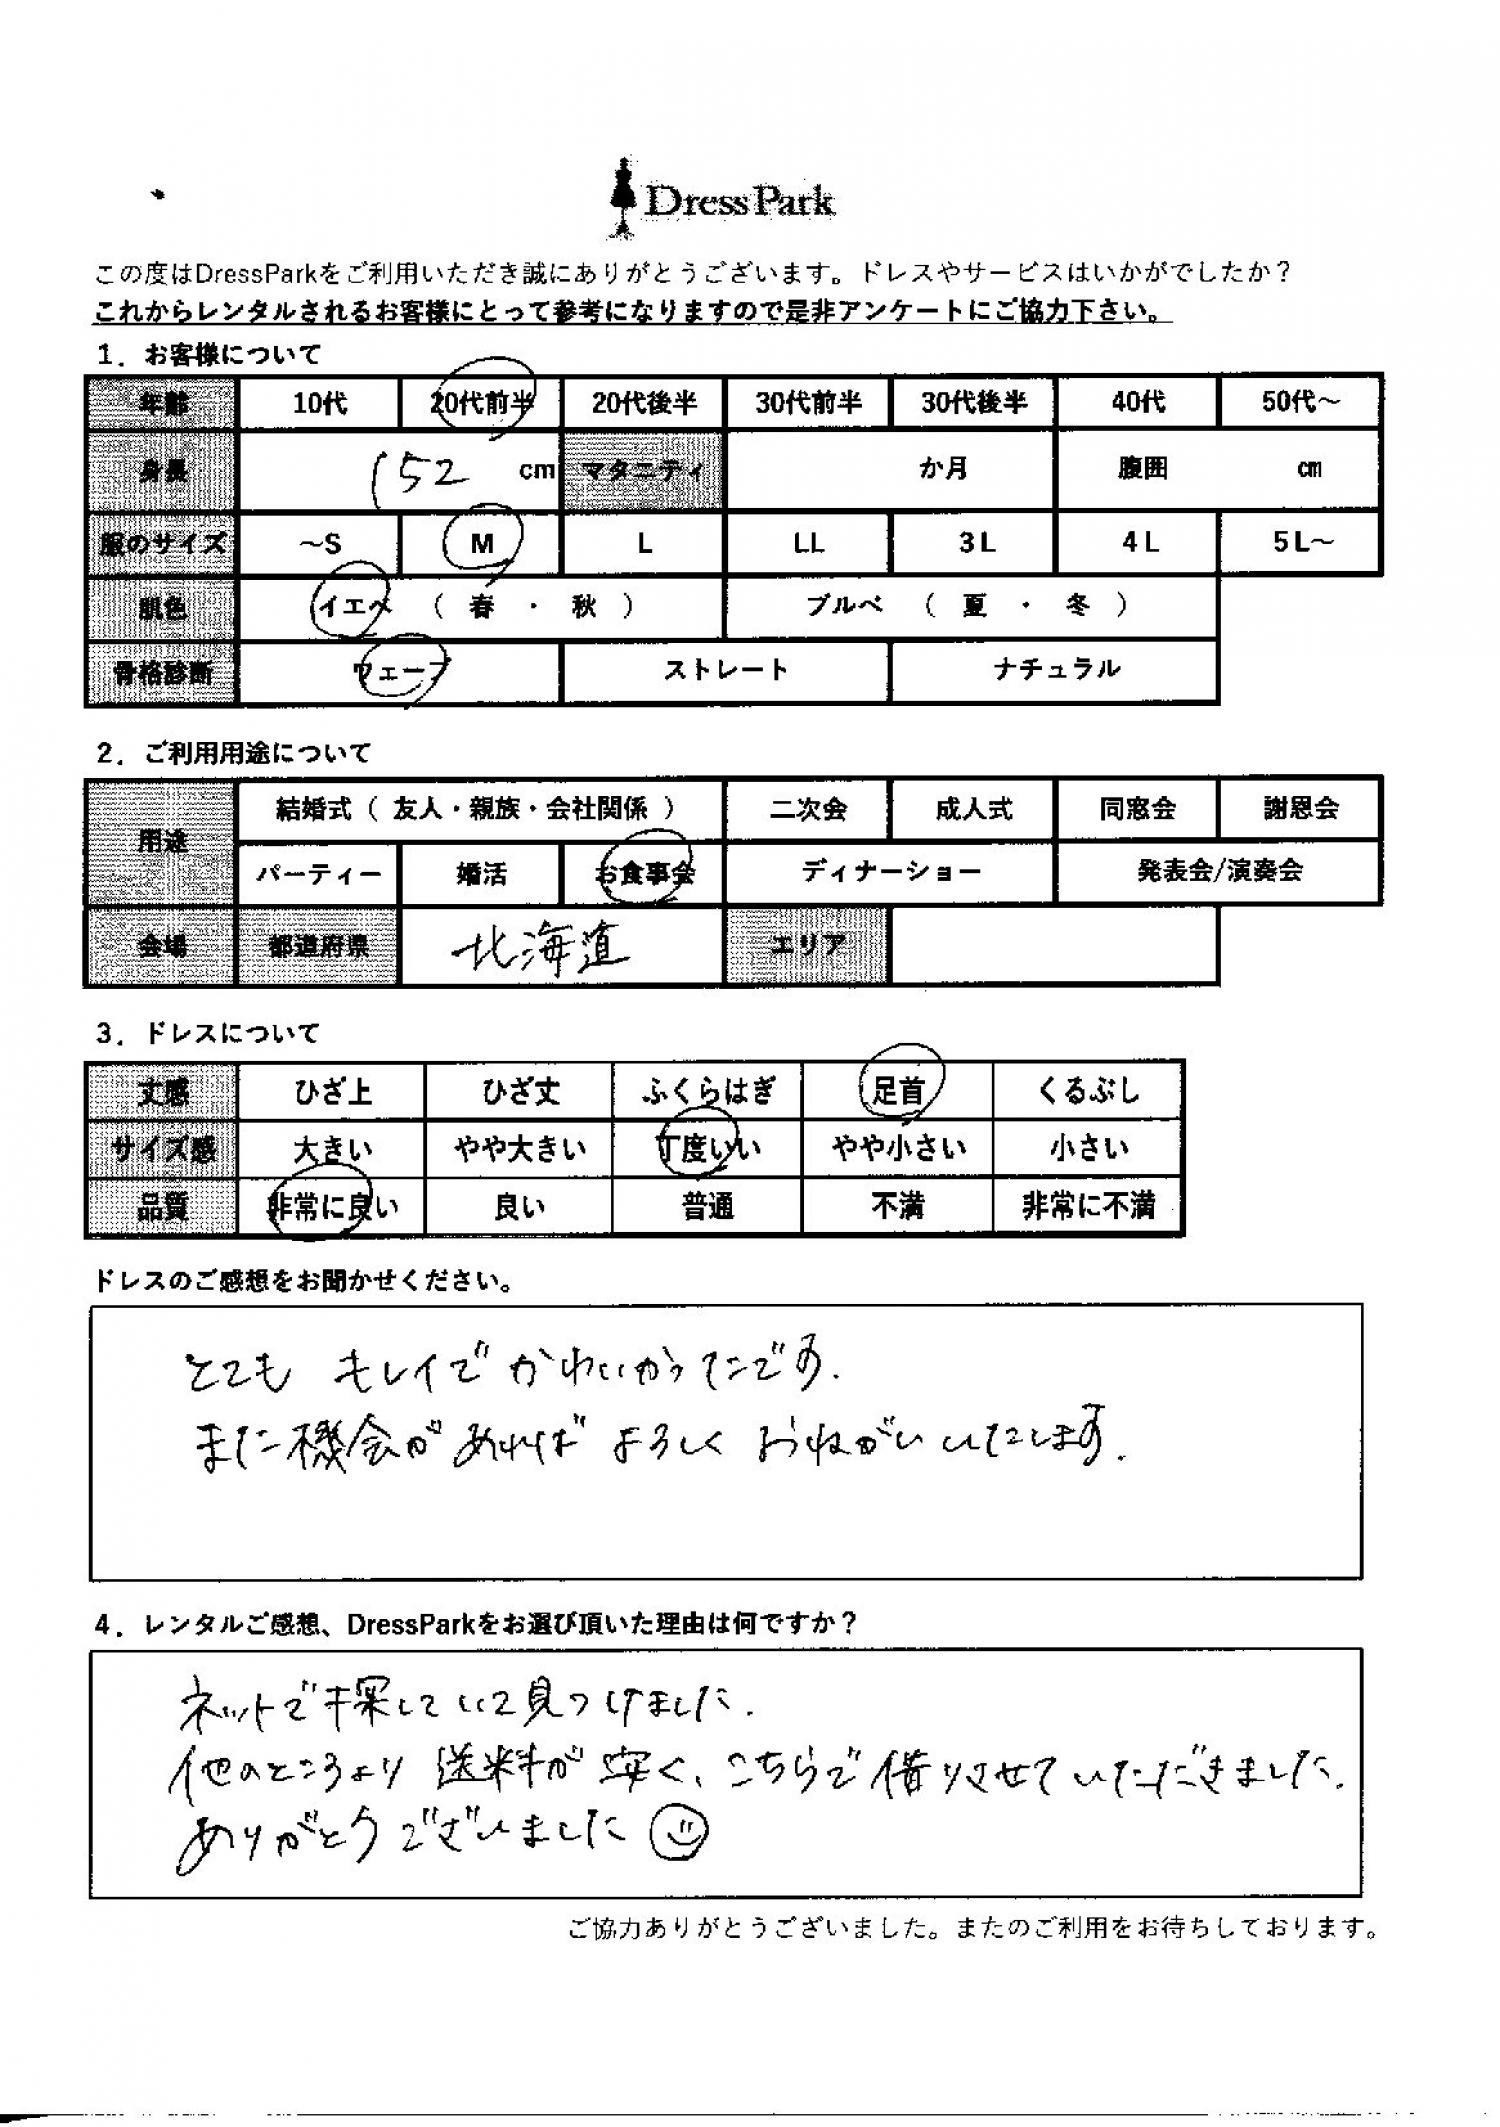 DressPark
この度はDressParkをご利用いただき誠にありがとうございます。ドレスやサービスはいかがでしたか？
これからレンタルされるお客様にとって参考になりますので是非アンケートにご協力下さい。
1．お客様について
年齢 10代 20代前半 20代後半 30代前半 30代後半 40代 50代～
身長 152 cm マタニティ か月 腹囲 cm
服のサイズ ～S M L LL 3L 4L 5L～
肌色 イエベ （ 春 ・ 秋 ） ブルベ （ 夏 ・ 冬 ）
骨格診断 ウェーブ ストレート ナチュラル
2．ご利用用途について
用途 結婚式（ 友人・親族・会社関係 ） 二次会 成人式 同窓会 謝恩会
パーティー 婚活 お食事会 ディナーショー 発表会/演奏会
会場 都道府県 北海道 エリア
3．ドレスについて
丈感 ひざ上 ひざ丈 ふくらはぎ 足首 くるぶし
サイズ感 大きい やや大きい 丁度いい やや小さい 小さい
品質 非常に良い 良い 普通 不満 非常に不満
ドレスのご感想をお聞かせください。
とても キレイで かわいかったです.
また機会があれば よろしく おねがいいたします.
4．レンタルご感想、DressParkをお選び頂いた理由は何ですか？
ネットで探していて見つけました.
他のところより 送料が 安く、こちらで借りさせていただきました.
ありがとうございました
ご協力ありがとうございました。またのご利用をお待ちしております。